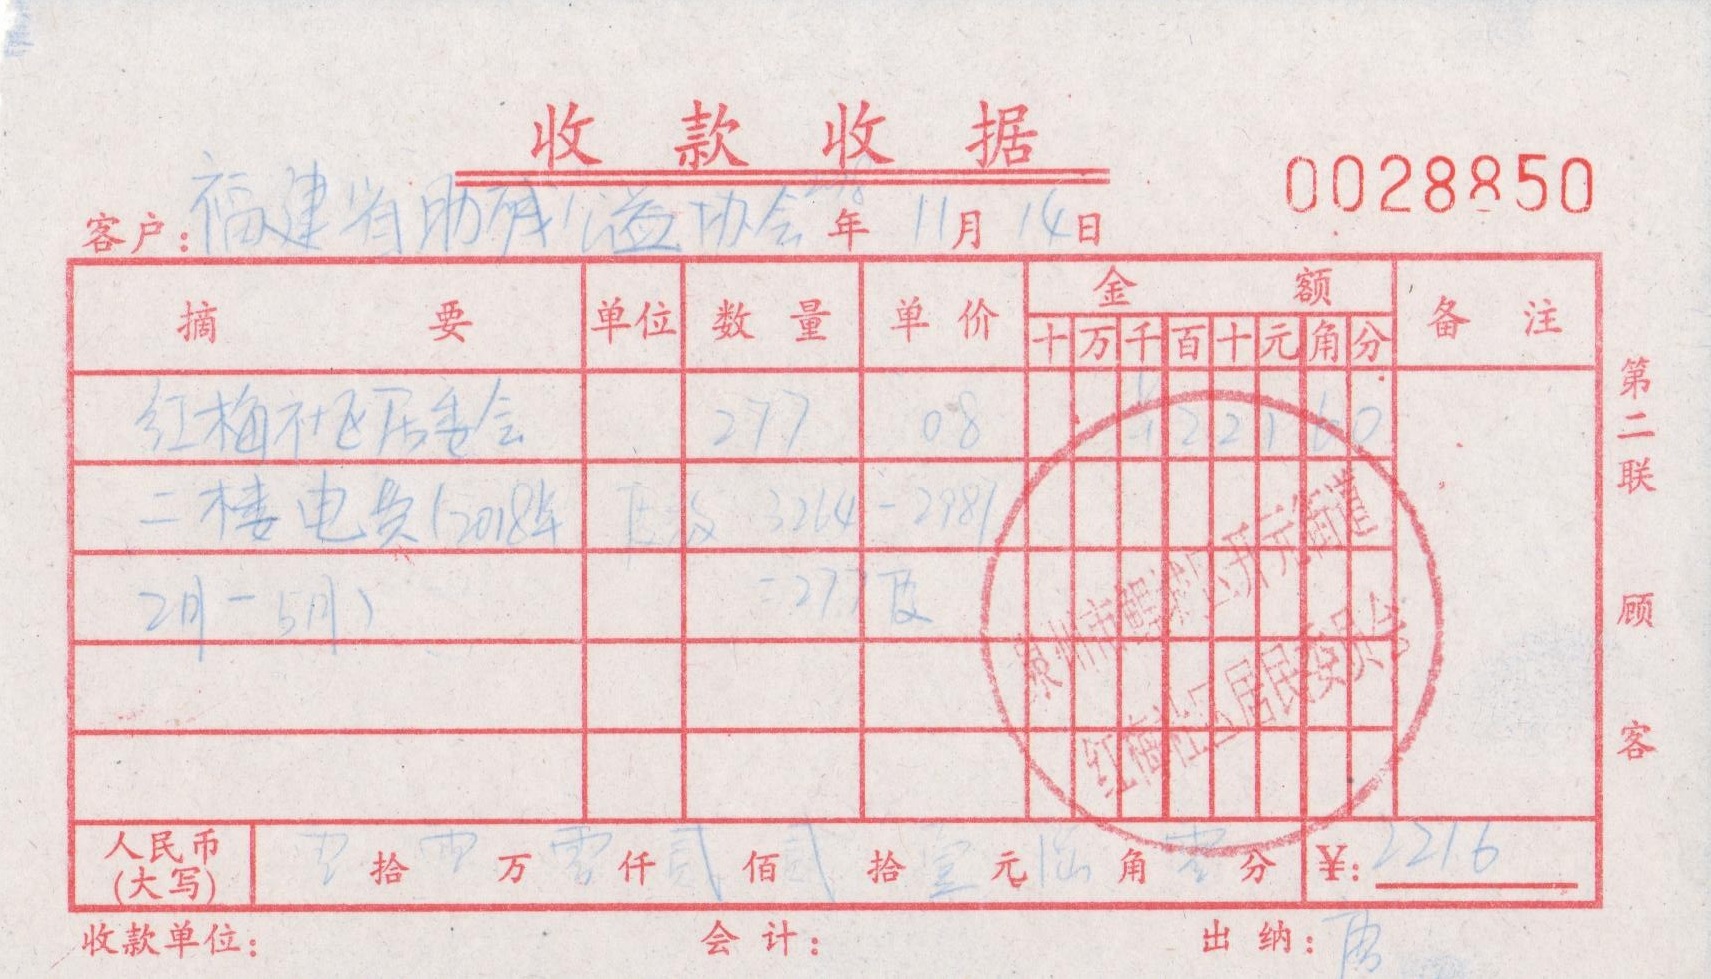 收款收据
0028850
客户：福建省助残公益协会 2018年 11月 14日
摘要 单位 数量 单价 金额 备注
十 万 千 百 十 元 角 分
红梅社区居委会 277 08 ¥ 2 2 1 6 0
二楼电费(2018年 3264-2987
2月-5月) =277度
泉州市鲤城区开元街道
红梅社区居民委员会
人民币(大写) 零拾零万零仟贰佰贰拾壹元陆角零分 ¥：2216
收款单位： 会计： 出纳：
第二联 顾客